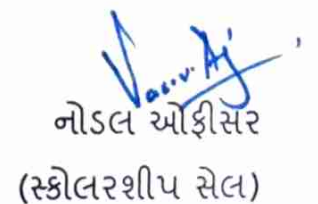 નોડલ ઓફીસર
(સ્કોલરશીપ સેલ)